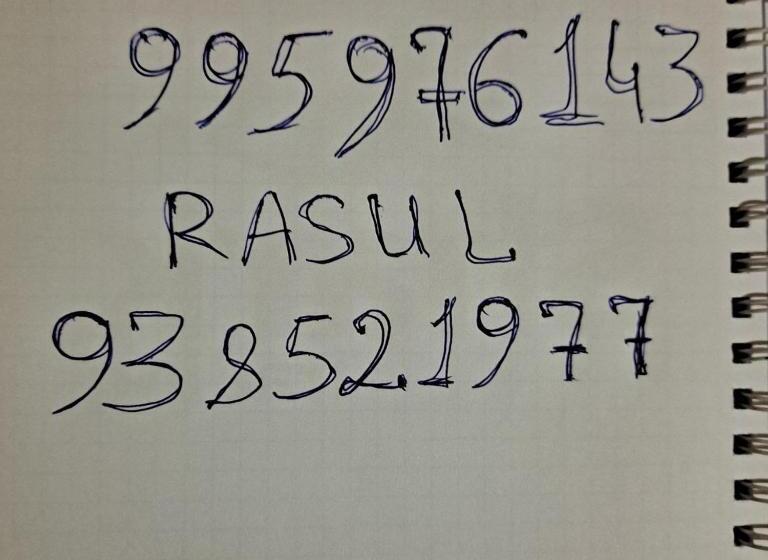 995976143
RASUL
938521977